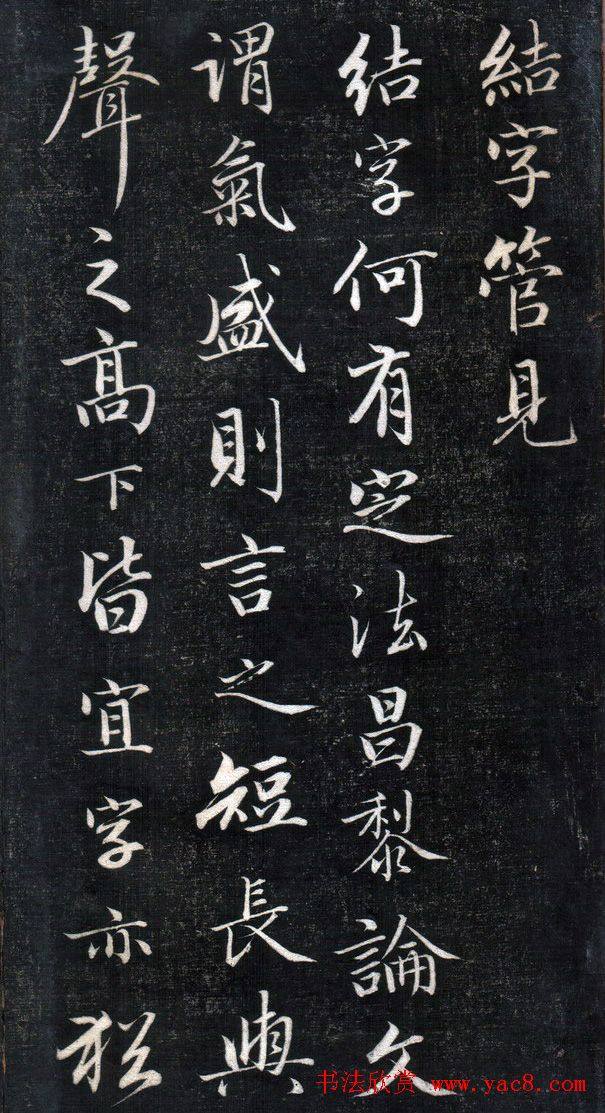 結字管見
结字何有定法昌黎論文
謂氣盛則言之短長與
聲之高下皆宜字亦猶
书法欣赏 www.yac8.com